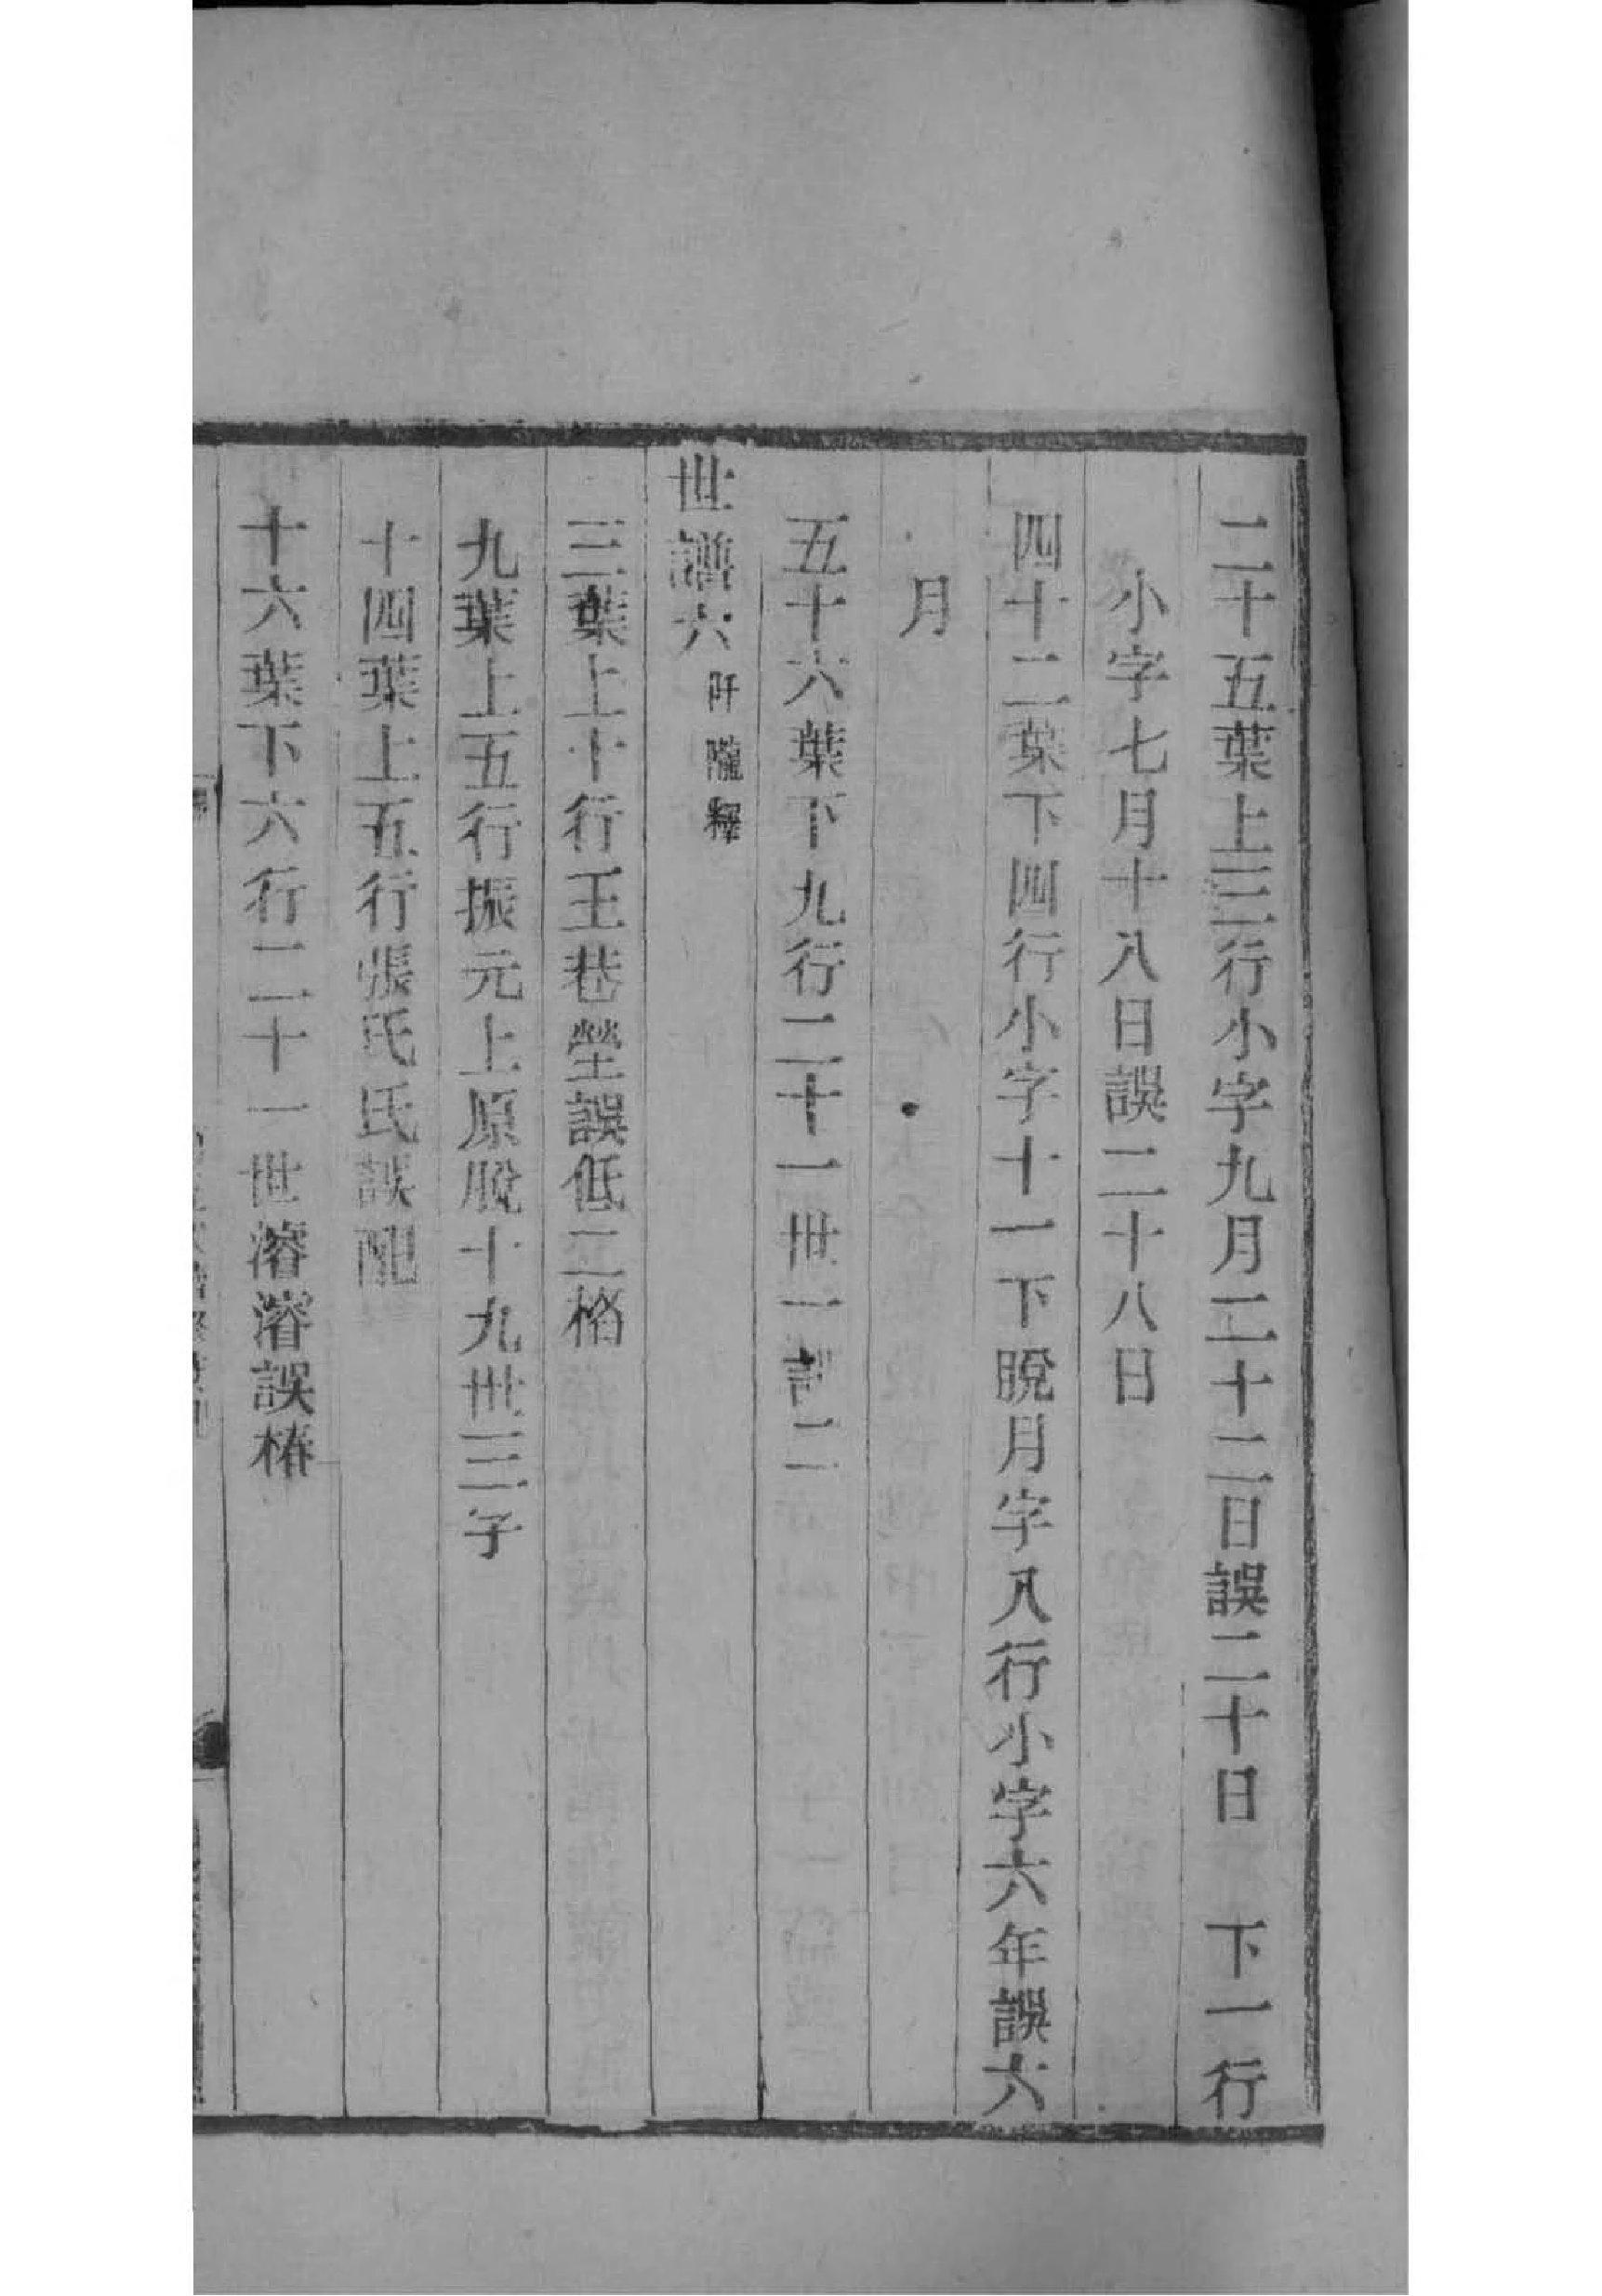 二十五葉上三行小字九月二十二日誤二十日　下一行
小字七月十八日誤二十八日
四十二葉下四行小字十一下脫月字八行小字六年誤六
月
五十六葉下九行二十一世一誤二
世譜六
三葉上十行王巷塋誤低二格
九葉上五行振元上原脫十九世三子
十四葉上五行張氏氏誤配
十六葉下六行二十一世溶溶誤椿